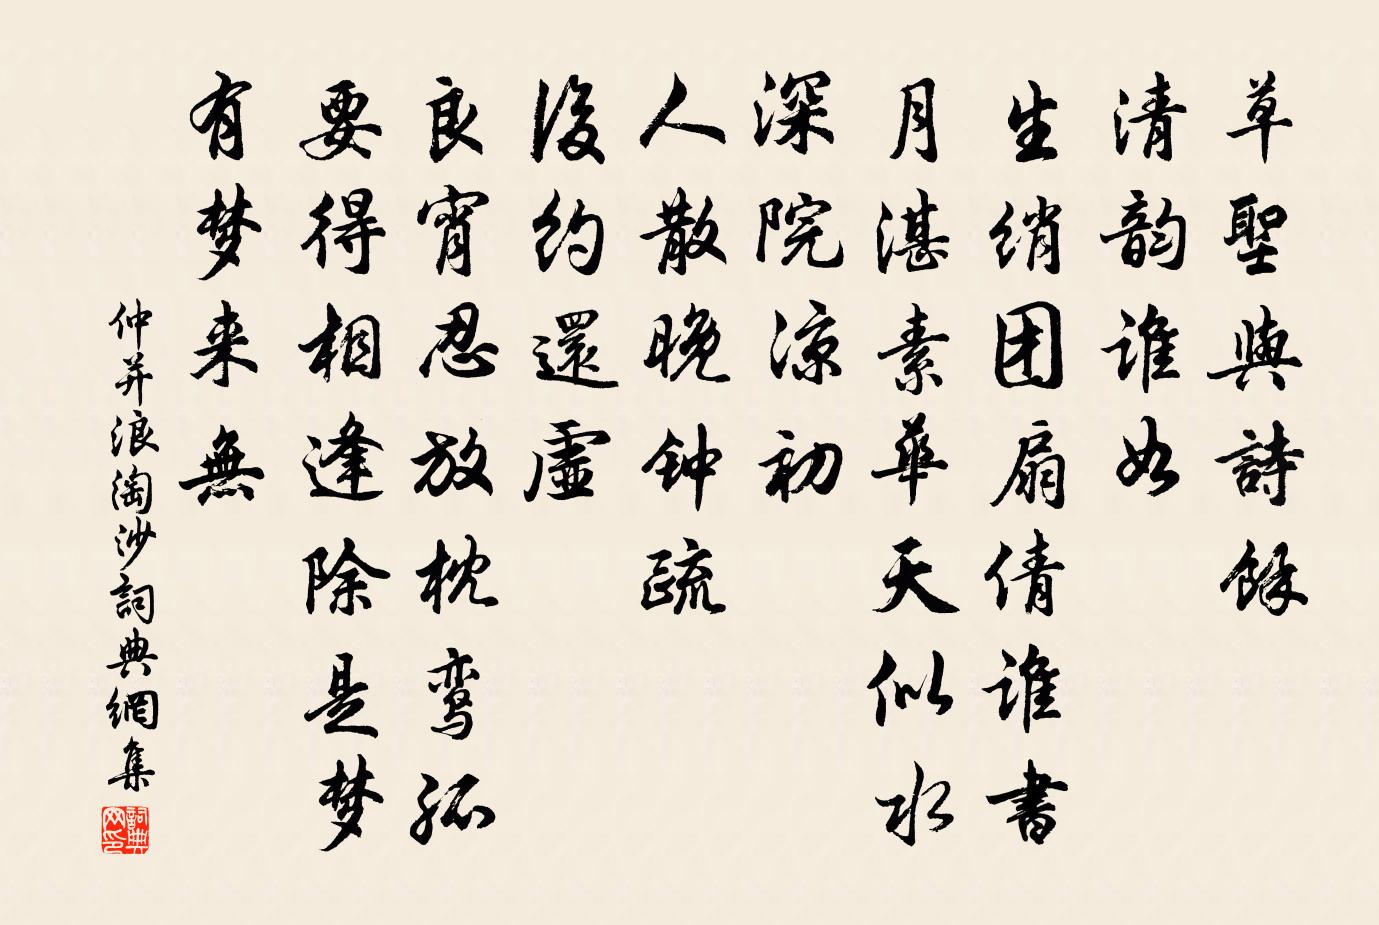 草聖與詩餘
清韵谁如
生绡团扇倩谁書
月湛素華天似水
深院凉初
人散晚钟疏
後约還虚
良宵忍放枕鸾孤
要得相逢除是梦
有梦来無
仲并浪淘沙詞典網集
詞典
网印